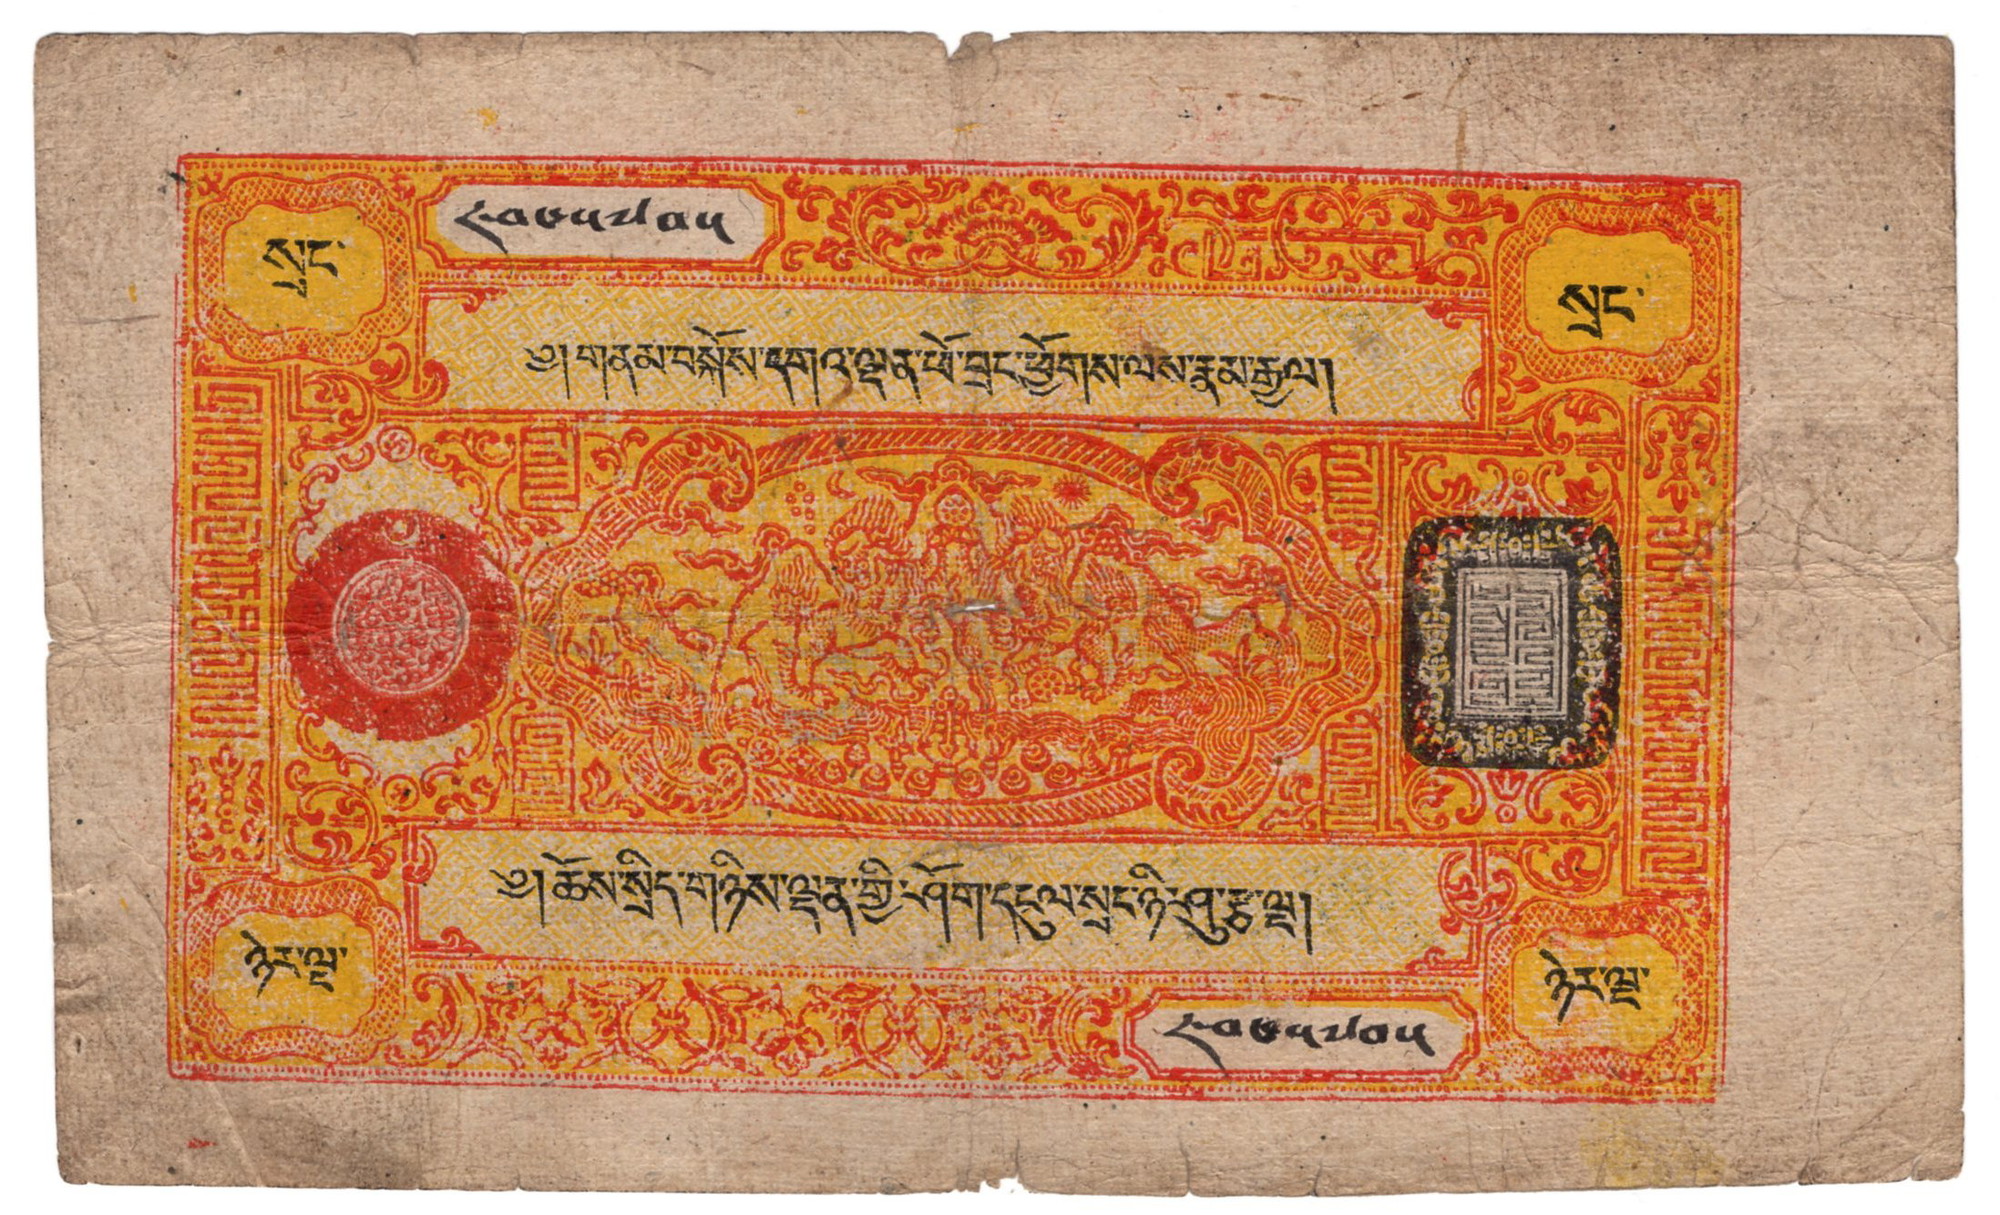 སྲང་
སྲང་
༄། གནམ་བསྐོས་དགའ་ལྡན་ཕོ་བྲང་ཕྱོགས་ལས་རྣམ་རྒྱལ།
༄། ཆོས་སྲིད་གཉིས་ལྡན་གྱི་ཤོག་དངུལ་སྲང་ཉི་ཤུ་རྩ་ལྔ།
ཉེར་ལྔ་
ཉེར་ལྔ་